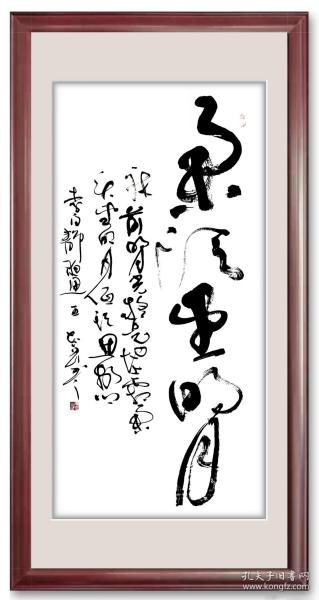 举头望明月
床前明月光疑是地上霜举
头望明月低头思故乡
李白静夜思
孔夫子旧书网